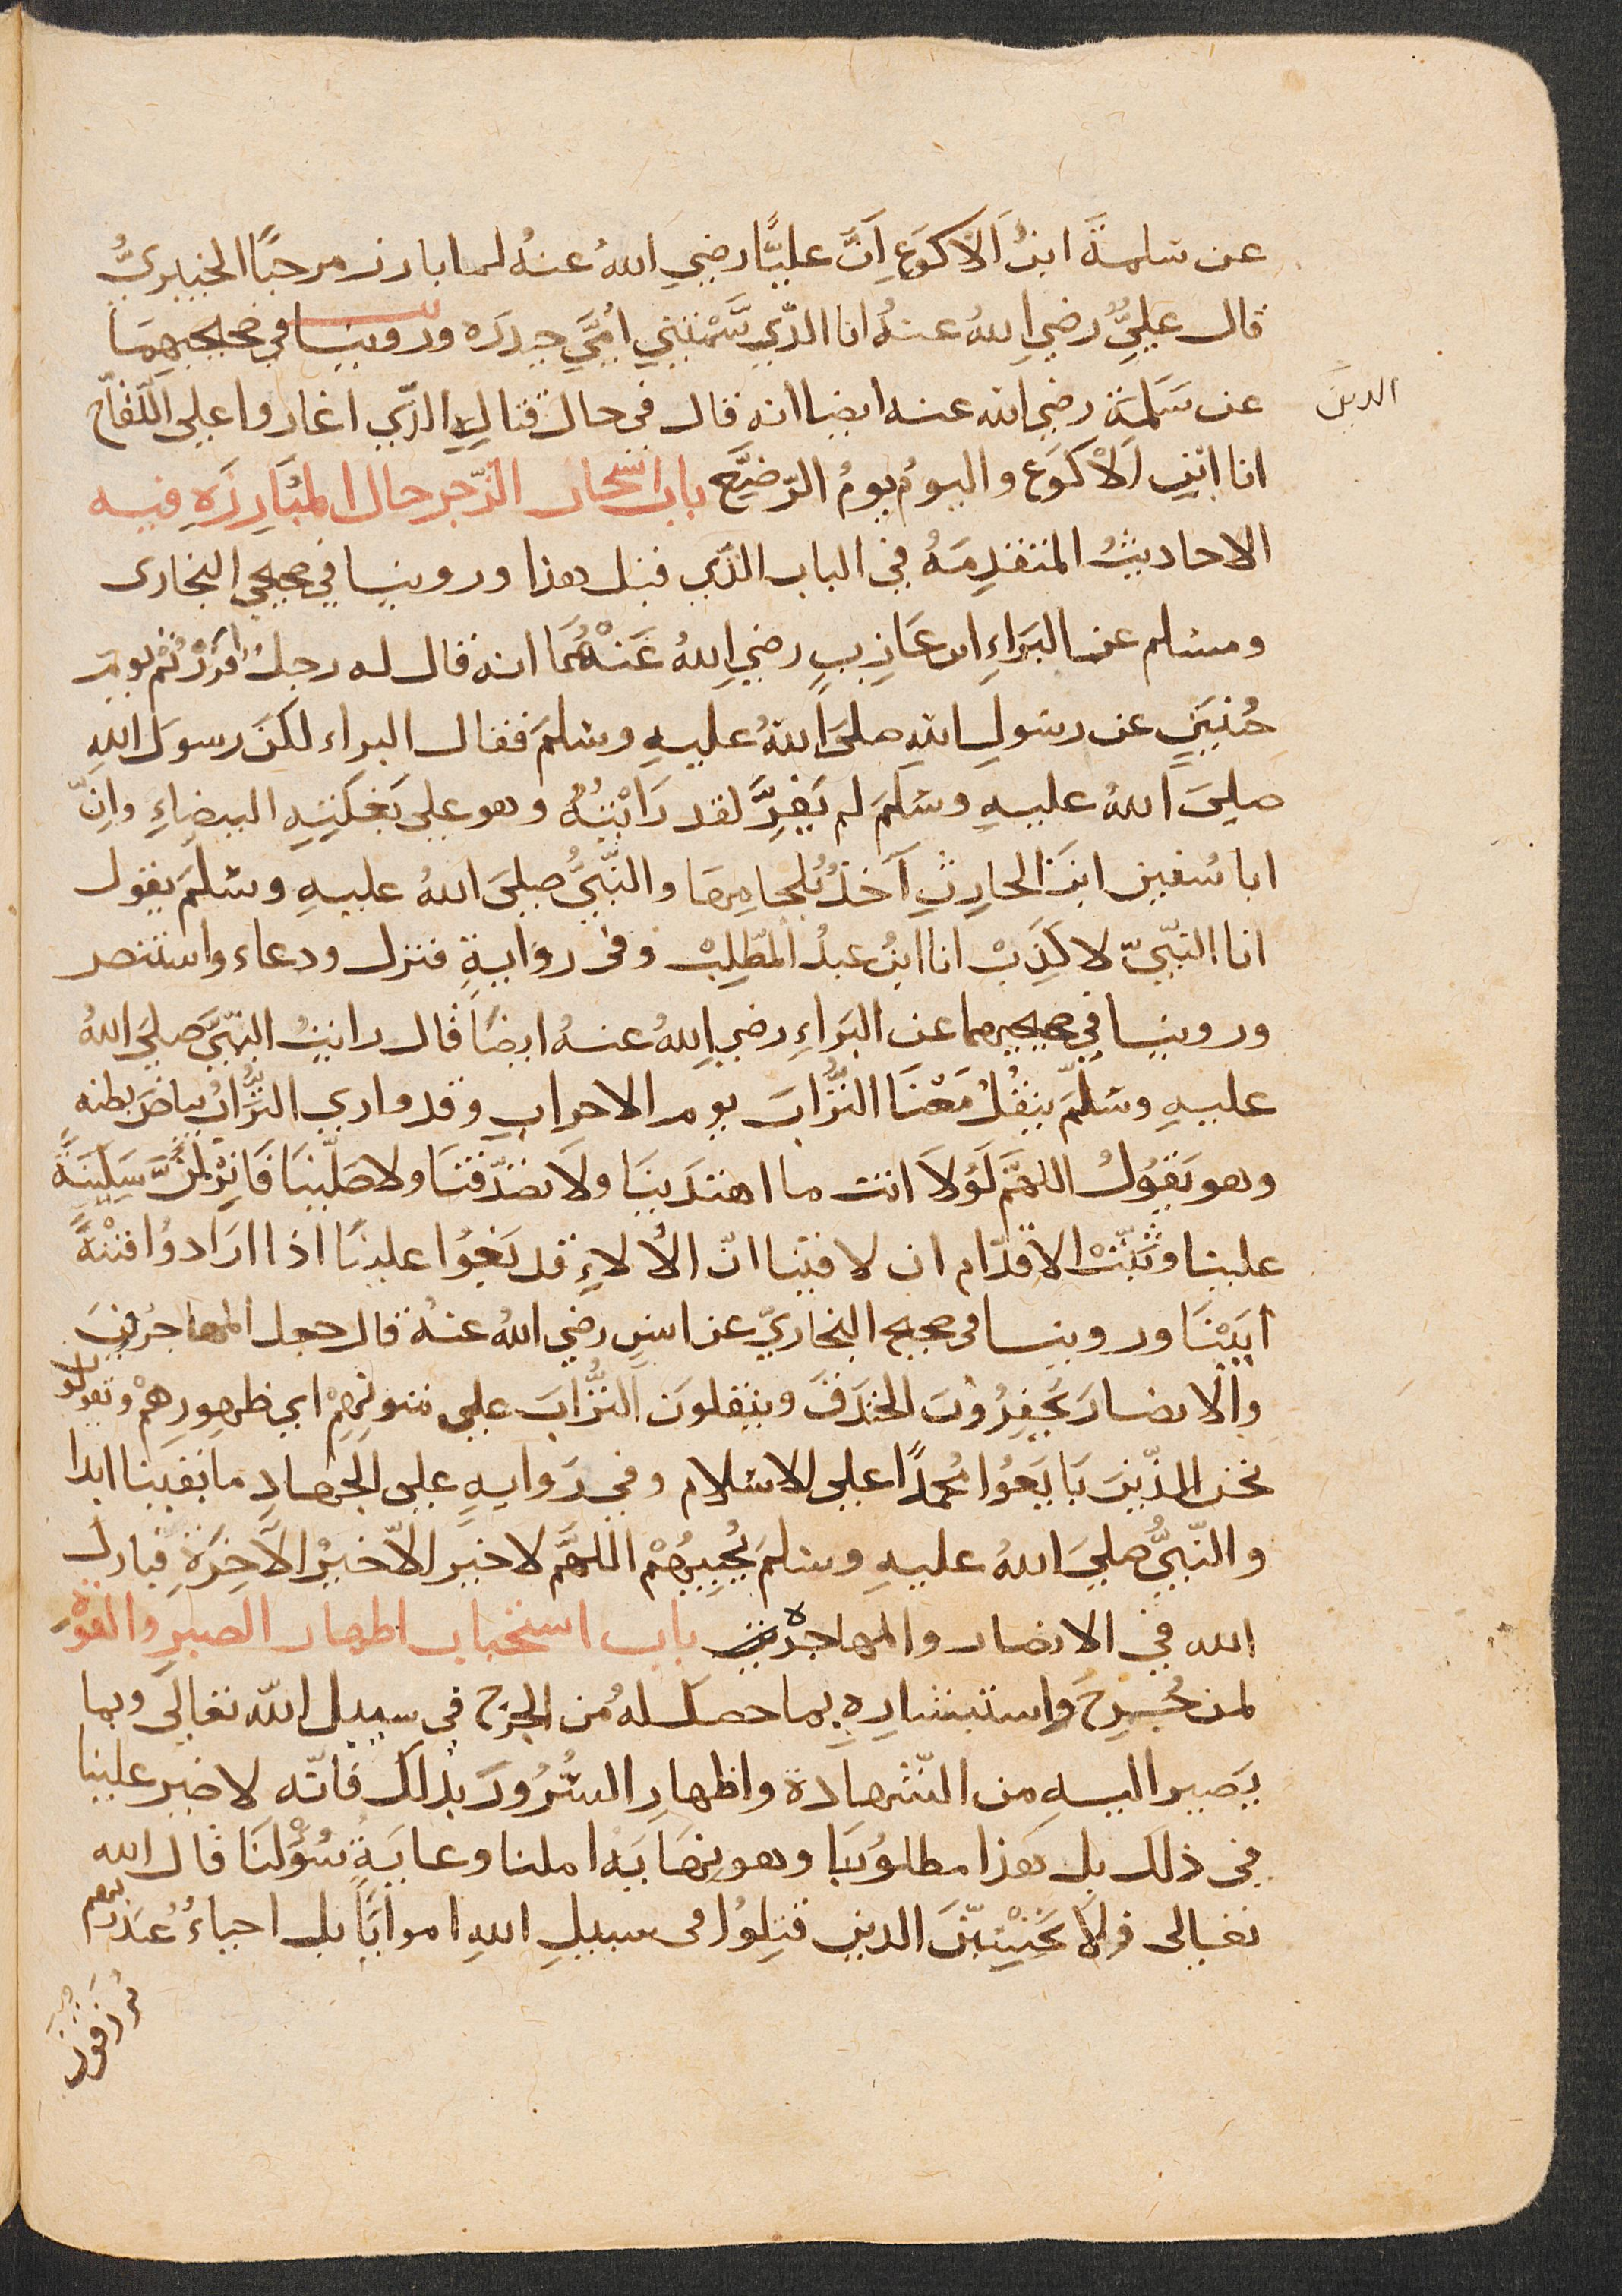 عن سلمةَ ابنُ اَلاكوَعِ اَنَّ عليًّا رضيِ اللهُ عنهُ لما بارز مرحبًا الخيبريُّ
قال عليٌّ رضيِ اللهُ عنهُ انا الذّي سَّمْتنيِ اُمِّيَ حيدرَه وروينا في صحيحيهِمَا
عن سَلمَة رضي الله عنه ايضا انه قال في حال قتالهِ الذّي اغاروا علي اللّقاّح
الدينَ
انا ابنُ اَلاْكوَع واليومُ يومُ الرّضيَّع باب استحباب الرّجز حال المْبَارِزَهِ فيه
الاحاديثُ المتقدِمَهُ في الباب الذّي قبل هذا وروينا في صحيحي البخارى
ومسلم عن البَراءِ ابن عَازِبٍ رضيِ اللهُ عَنْهُمَا انه قال له رجلُ افرَرْتُمْ يوم
حُنيَنٍ عن رسولِ اللهِ صلىَ اللهُ عليهِ وسلمَ فقال البراء لكنَ رسوَل اللهِ
صلىَ اللهُ عليهِ وسَلمَ لم يَفِرَّ لقد رَايْتُهُ وهو علي بَغلَتِهِ البيضاءِ وانِّ
ابا سُفين ابنَ الحارِثِ آخذُ بُلجامِهَا والنّبيُّ صليَ اللهُ عليهِ وسَلمَّ يقول
انا النّبيّ لا كَذِبْ انا ابنُ عبدُ المطّلِبْ وفى روَايةِ فنزل ودعاء واستنصر
وروينا في صحيحيهما عن البَراءِ رضي اللهُ عنهُ ايضًا قال رايتُ النّبيَّ صليَ اللهُ
عليهِ وسَلمَّ ينقُلُ مَعْنَا التُّرَابَ يوم الاحزابِ وقد واري التُّرَابُ بياضَ بطنه
وهو يَقوُلُ اللهمَّ لَوْلاَ انت ما اهتدَينَا وَلاَ تصَدّقنَا ولا صَلّينَا فَانِزْلنَّ سَكِينَةً
علينا وثَبّت الاقدام ان لاقينا انّ الأُلاءِ قد بَغَوُا علينَا اذا ارَادوُا فتْنَةً
ابَيْنَا وروينا فى صحيح البخاريّ عن انسٍ رضي اللهُ عنهُ قال جعل المهاجُرونَ
والانصارَ يَحفِرُوْنَ الخندَقَ وينقلونَ التُّرَابَ علي متونِهِمْ اي ظهورِهِمْ ويقولون
نحن الذّينَ بَايَعوُا مُحمدًا علي الاسْلام وفي رَوايهٍ علي الجهادِ ما بقينا ابدا
والنّبيُّ صليَ اللهُ عليهِ وسلمَ يُجِيبُهُمْ اللهمَّ لا خيَر الاّ خيرُ الآخِرَةِ فبارك
الله في الانصار والمهاجرَهْ باب استحباب اظهار الصبر والقوّهْ
لمن جُرِحَ واستبشارِهِ بما حصَل له مُن الجرْح في سبيل اللهّ تعالَي وبما
يَصير اليهِ من الشّهادة واظهارِ السُّرُورَ بذلك فانّه لا ضير علينا
في ذلك بل هَذا مطلوُبنَا وهو نِهَايَهْ املنا وغايَةُ سُؤْلنَا قال الله
تعالى ولاَ تَحْسَبَنّ الدين قتِلوُا فى سبيلِ اللهِ امواتًا بل احياءُ عنَد ربهم
يُرزَقونَ